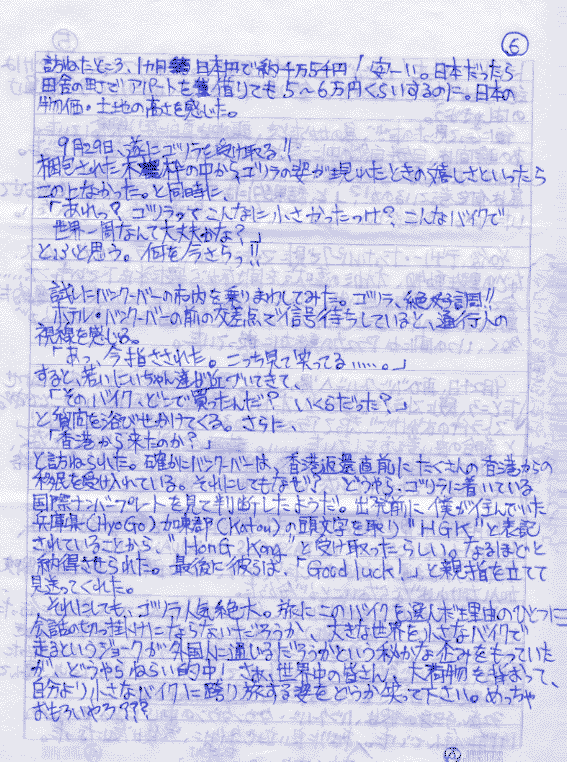 ⑥
訪ねたところ、1カ月 日本円で約4万5千円！安ーい。日本だったら
田舎の町でアパートを借りても5〜6万円くらいするのに。日本の
物価・土地の高さを感じた。
9月29日、遂にゴリラを受け取る!!
梱包された木枠の中からゴリラの姿が現れたときの嬉しさといったら
この上なかった。と同時に、
「あれっ？ゴリラってこんなに小さかったっけ？こんなバイクで
世界一周なんて大丈夫かな？」
とふと思う。何を今さらっ!!
試しにバンクーバーの市内を乗りまわしてみた。ゴリラ、絶好調!!
ホテル・バンクーバーの前の交差点で信号待ちしていると、通行人の
視線を感じる。
「あっ、今指さされた。こっち見て笑ってる……。」
すると、若いにいちゃん達が近づいてきて、
「そのバイク、どこで買ったんだ？いくらだった？」
と質問を浴びせかけてくる。さらに、
「香港から来たのか？」
と訪ねられた。確かにバンクーバーは、香港返還直前にたくさんの香港からの
移民を受け入れている。それにしてもなぜ？どうやら、ゴリラに着いている
国際ナンバープレートを見て判断したようだ。出発前に僕が住んでいた
兵庫県(HyoGo)加東郡(Katou)の頭文字を取り"HGK"と表記
されていることから、"HonG Kong"と受け取ったらしい。なるほどと
納得させられた。最後に彼らは、「Good luck!」と親指を立てて
見送ってくれた。
それにしても、ゴリラ人気絶大。旅にこのバイクを選んだ理由のひとつに
会話の切っ掛けにならないだろうか、大きな世界を小さなバイクで
走るというジョークが外国人に通じるだろうかという秘かな企みをもっていた
が、どうやらねらい的中！さぁ、世界中の皆さん、大荷物を積まって、
自分より小さなバイクに跨り旅する姿をどうか笑って下さい。めっちゃ
おもろいやろ???